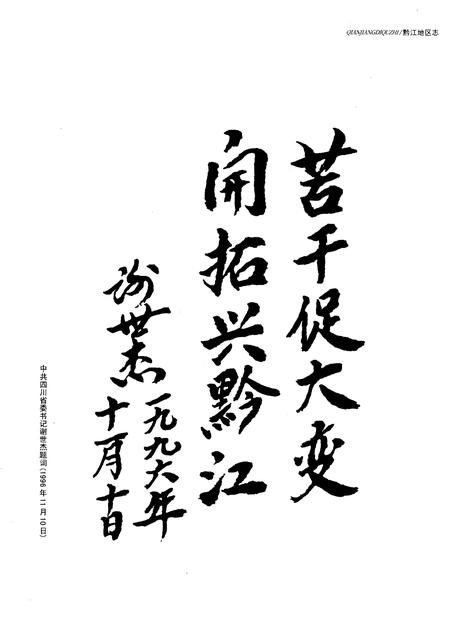 QIANJIANGDIQUZHI/黔江地区志
苦干促大变
开拓兴黔江
谢世杰
一九九六年
十一月十日
中共四川省委书记谢世杰题词(1996年11月10日)